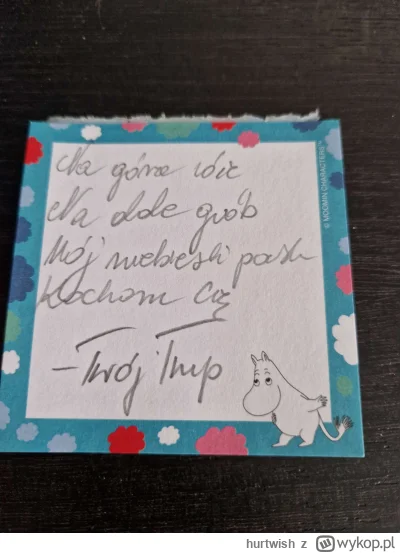 Na górze róże
Na dole grób
Mój niebieski pasku
Kocham Cię
– Twój Trup
© MOOMIN CHARACTERS™
hurtwish z wykop.pl